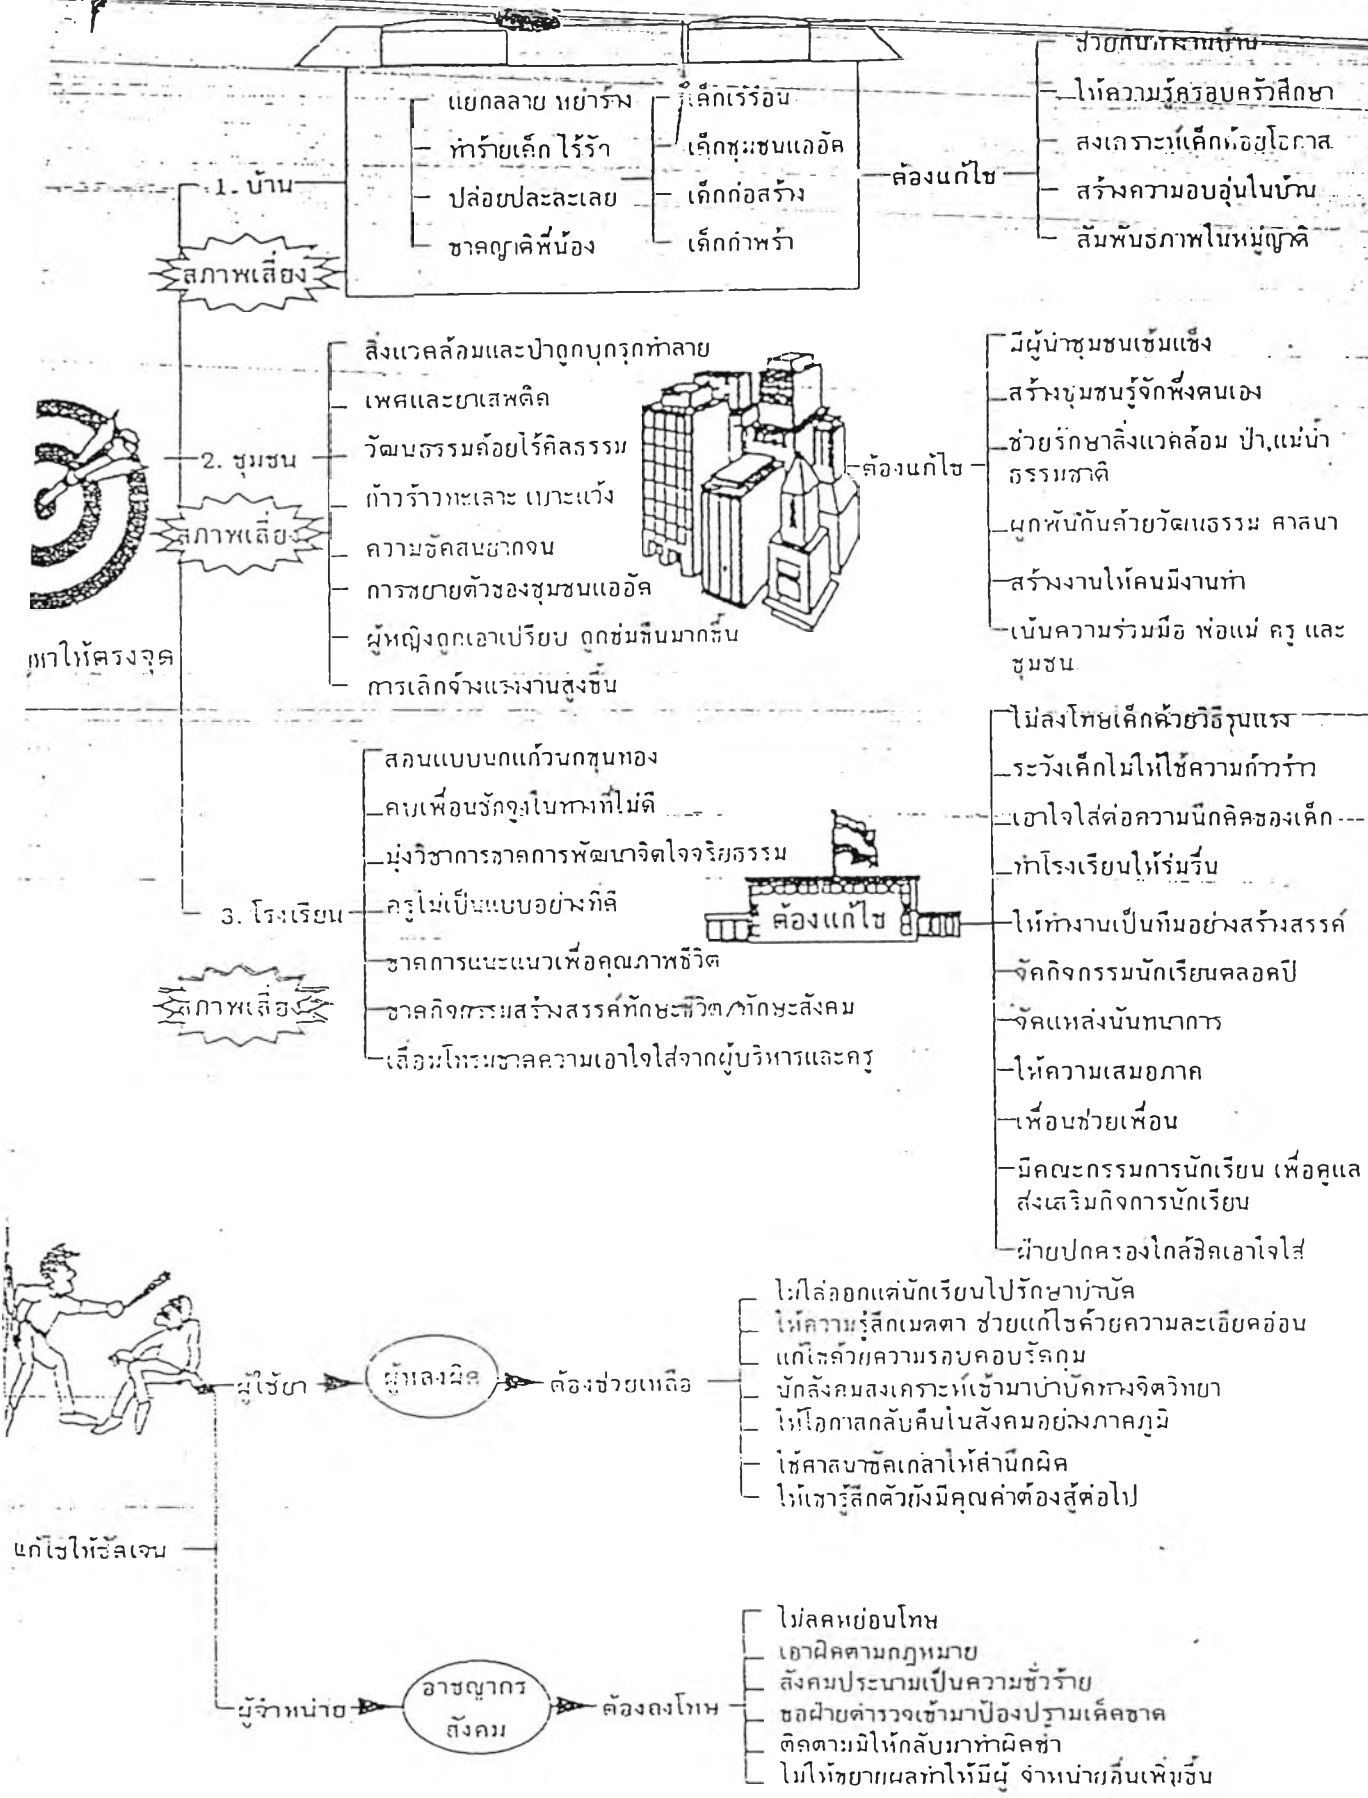 ช่วยกันทำงานบ้าน
ให้ความรู้ครอบครัวศึกษา
สงเคราะห์เด็กด้อยโอกาส
สร้างความอบอุ่นในบ้าน
สัมพันธภาพในหมู่ญาติ
แยกสลาย หย่าร้าง
ทำร้ายเด็ก ไร้รัก
ปล่อยปละละเลย
ขาดญาติพี่น้อง
เด็กเร่ร่อน
เด็กชุมชนแออัด
เด็กก่อสร้าง
เด็กกำพร้า
1. บ้าน
ต้องแก้ไข
สภาพเสี่ยง
สิ่งแวดล้อมและป่าถูกบุกรุกทำลาย
เพศและยาเสพติด
วัฒนธรรมด้อยไร้ศีลธรรม
ก้าวร้าวทะเลาะ เบาะแว้ง
ความขัดสนยากจน
การขยายตัวของชุมชนแออัด
ผู้หญิงถูกเอาเปรียบ ถูกข่มขืนมากขึ้น
การเลิกจ้างแรงงานสูงขึ้น
2. ชุมชน
สภาพเสี่ยง
ต้องแก้ไข
มีผู้นำชุมชนเข้มแข็ง
สร้างชุมชนรู้จักพึ่งตนเอง
ช่วยรักษาสิ่งแวดล้อม ป่า,แม่น้ำ
ธรรมชาติ
ผูกพันกันด้วยวัฒนธรรม ศาสนา
สร้างงานให้คนมีงานทำ
เน้นความร่วมมือ พ่อแม่ ครู และ
ชุมชน
หาให้ตรงจุด
สอนแบบนกแก้วนกขุนทอง
คบเพื่อนชักจูงในทางที่ไม่ดี
มุ่งวิชาการขาดการพัฒนาจิตใจจริยธรรม
ครูไม่เป็นแบบอย่างที่ดี
ขาดการแนะแนวเพื่อคุณภาพชีวิต
ขาดกิจกรรมสร้างสรรค์ทักษะชีวิต/ทักษะสังคม
เสื่อมโทรมขาดความเอาใจใส่จากผู้บริหารและครู
3. โรงเรียน
สภาพเสี่ยง
ต้องแก้ไข
ไม่ลงโทษเด็กด้วยวิธีรุนแรง
ระวังเด็กไม่ให้ใช้ความก้าวร้าว
เอาใจใส่ต่อความนึกคิดของเด็ก
ทำโรงเรียนให้ร่มรื่น
ให้ทำงานเป็นทีมอย่างสร้างสรรค์
จัดกิจกรรมนักเรียนตลอดปี
จัดแหล่งนันทนาการ
ให้ความเสมอภาค
เพื่อนช่วยเพื่อน
มีคณะกรรมการนักเรียน เพื่อดูแล
ส่งเสริมกิจการนักเรียน
ฝ่ายปกครองใกล้ชิดเอาใจใส่
ผู้ใช้ยา
ผู้หลงผิด
ต้องช่วยเหลือ
ไม่ไล่ออกแต่นักเรียนไปรักษาบำบัด
ให้ความรู้สึกเมตตา ช่วยแก้ไขด้วยความละเอียดอ่อน
แก้ไขด้วยความรอบคอบรัดกุม
นักสังคมสงเคราะห์เข้ามาบำบัดทางจิตวิทยา
ให้โอกาสกลับคืนในสังคมอย่างภาคภูมิ
ใช้ศาสนาขัดเกลาให้สำนึกผิด
ให้เขารู้สึกตัวยังมีคุณค่าต้องสู้ต่อไป
แก้ไขให้ชัดเจน
ผู้จำหน่าย
อาชญากร
สังคม
ต้องลงโทษ
ไม่ลดหย่อนโทษ
เอาผิดตามกฎหมาย
สังคมประนามเป็นความชั่วร้าย
ขอฝ่ายตำรวจเข้ามาป้องปรามเด็ดขาด
ติดตามมิให้กลับมาทำผิดซ้ำ
ไม่ให้ขยายผลทำให้มีผู้ จำหน่ายอื่นเพิ่มขึ้น